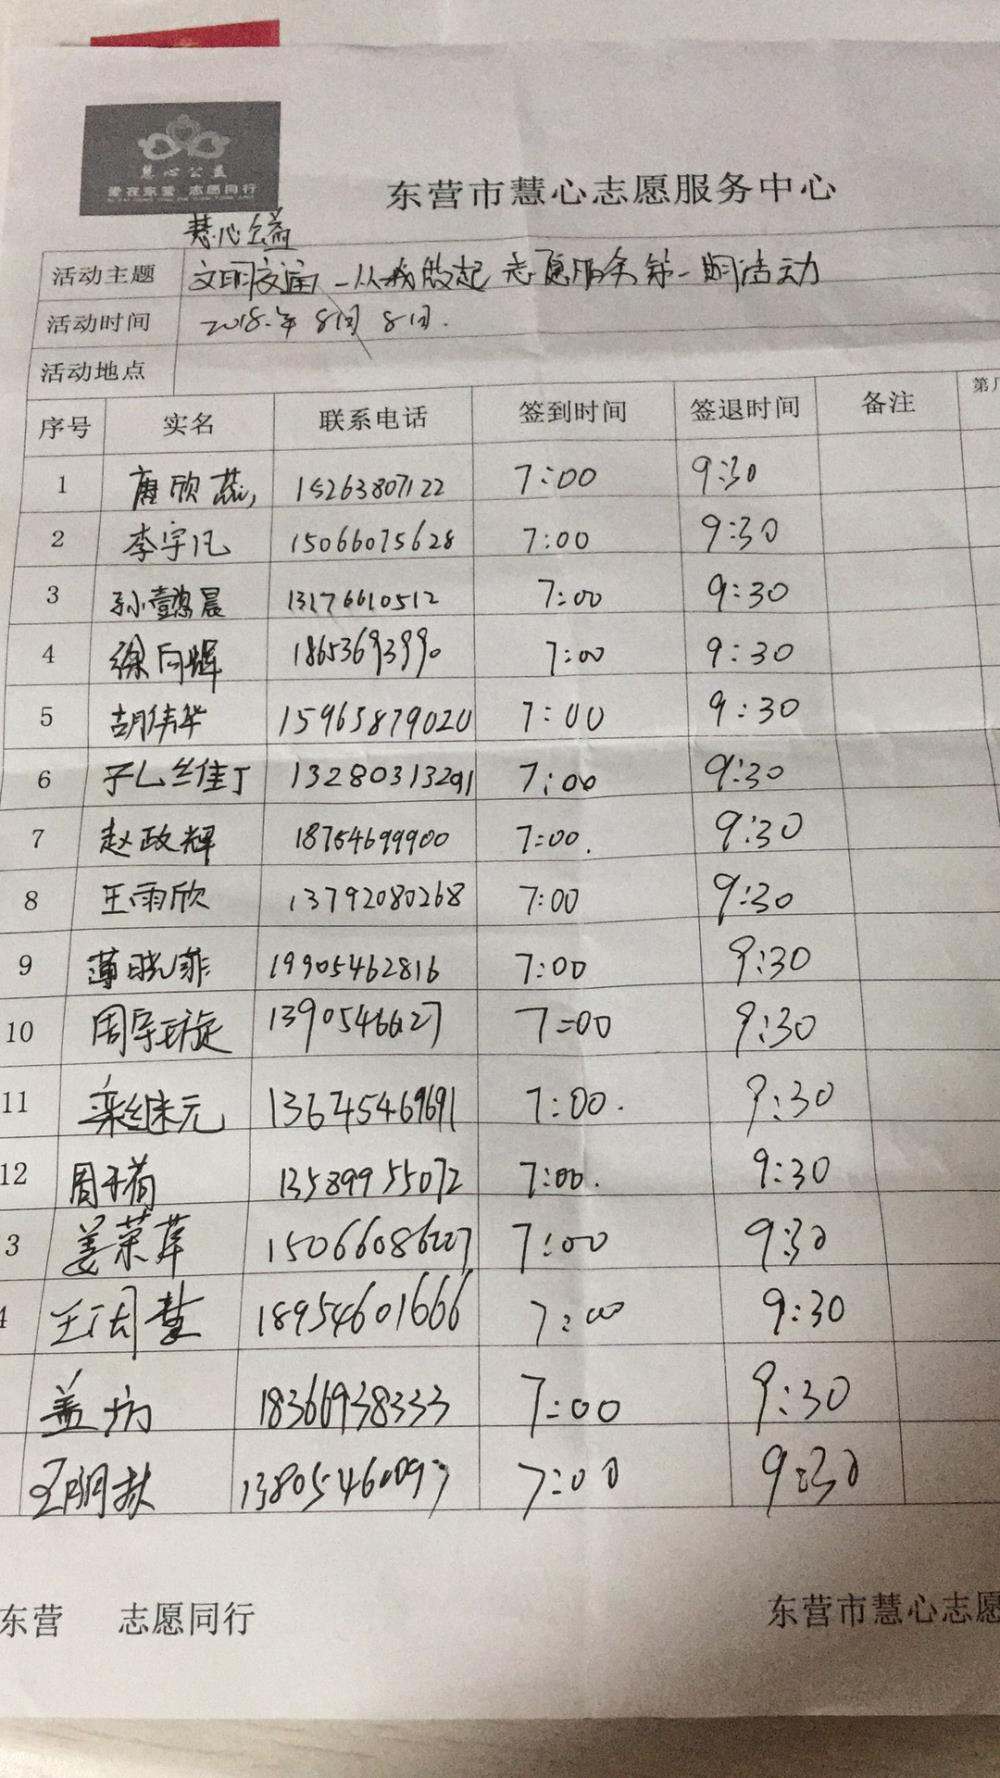 慧心公益
爱在东营 志愿同行
东营市慧心志愿服务中心
慧心公益
活动主题 文明交通—从我做起 志愿服务第一期活动
活动时间 2018.年 8月 8日.
活动地点
序号 实名 联系电话 签到时间 签退时间 备注 第
1 唐欣蕊 15263807122 7:00 9:30
2 李宇凡 15066075628 7:00 9:30
3 孙懿晨 13176610512 7:00 9:30
4 徐向辉 18653693990 7:00 9:30
5 胡伟华 15963879020 7:00 9:30
6 13280313291 7:00 9:30
7 赵政辉 18754699900 7:00. 9:30
8 王雨欣 13792080268 7:00 9:30
9 薄晓菲 19905462816 7:00 9:30
10 周 7:00 9:30
11 栾继元 13645469691 7:00. 9:30
12 周子荷 13589955072 7:00. 9:30
3 姜荣萍 15066086227 7:00 9:30
4 王 18954601666 7:00 9:30
盖 18366938333 7:00 9:30
王 13805460097 7:00 9:30
东营 志愿同行 东营市慧心志愿